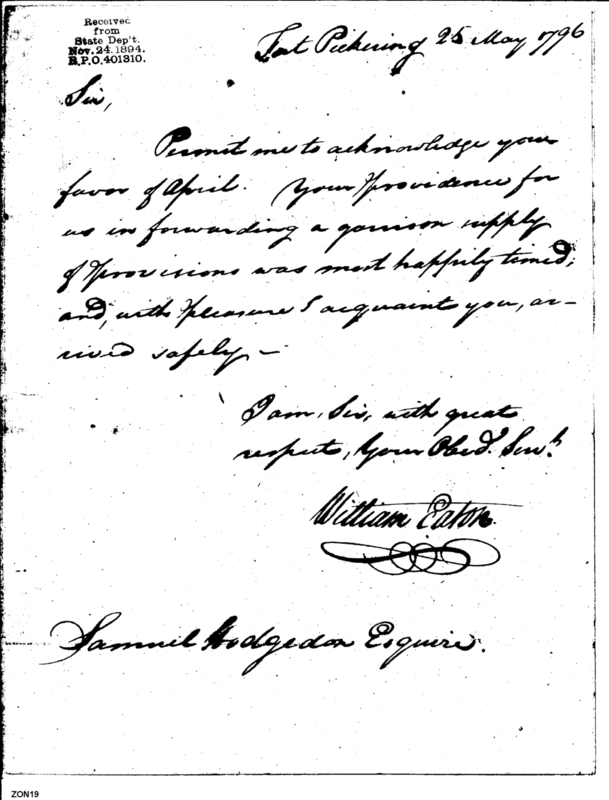 Received
from
State Dep't.
Nov. 24. 1894.
R.P.O. 401310.
Fort Pickering 25 May 1796
Sir,
Permit me to acknowledge your
favor of April. Your Providence for
us in forwarding a garrison supply
of Provisions was most happily timed;
and, with Pleasure I acquaint you, ar-
rived safely —
I am, Sir, with great
respect, Your Obed.t Serv.t
William Eaton
Samuel Hodgedon Esquire.
ZON19